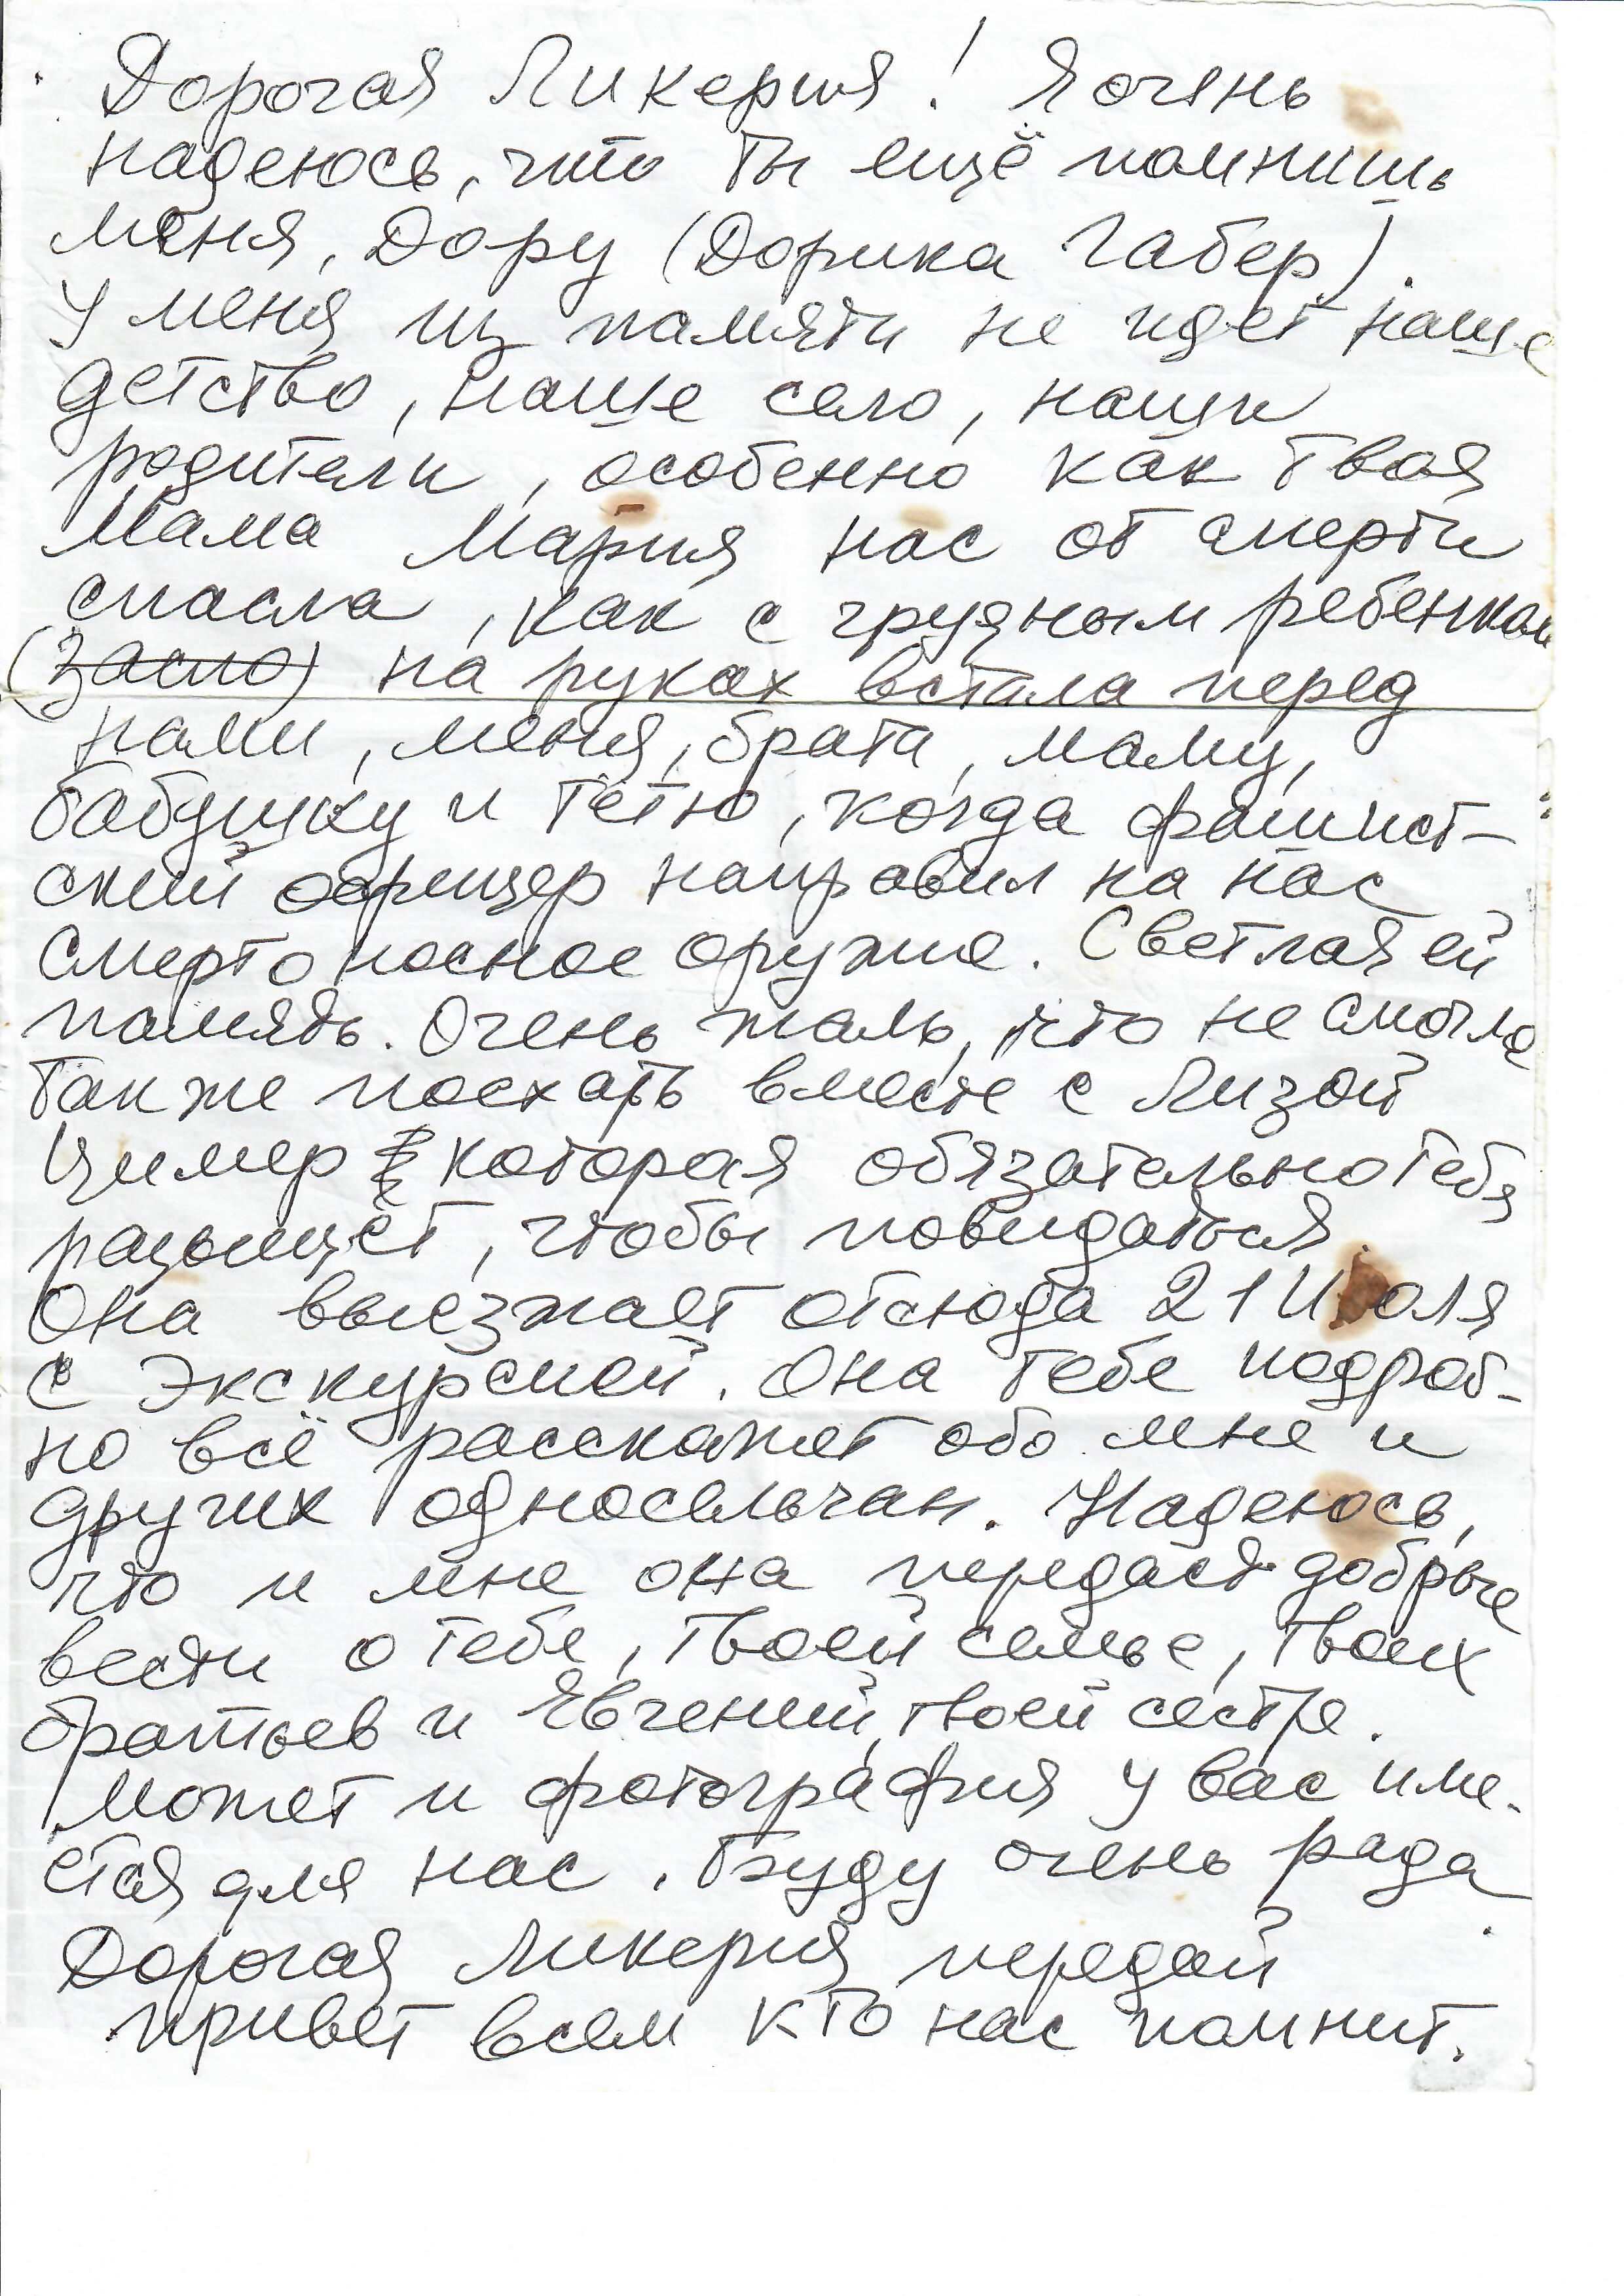 Дорогая Ликерия! Я очень
надеюсь, что ты ещё помнишь
меня, Дору (Дорика Габер).
У меня из памяти не идет наше
детство, наше село, наши
родители, особенно как твоя
Мама Мария нас от смерти
спасла, как с грудным ребенком
на руках встала перед
нами, меня, брата, маму,
бабушку и тётю, когда фашист-
ский офицер направил на нас
смертоносное оружие. Светлая ей
память. Очень жаль, что не смогла
также поехать вместе с Лизой
Цимер которая обязательно тебя
разыщет, чтобы повидаться.
Она выезжает отсюда 21 Июля
с экскурсией. Она тебе подроб-
но всё расскажет обо мне и
других односельчан. Надеюсь,
что и мне она передаст добрые
вести о тебе, твоей семье, твоих
братьев и Явгений, твоей сестре.
Может и фотография у вас име-
ется для нас. Буду очень рада
Дорогая Ликерия передай
привет всем кто нас помнит.